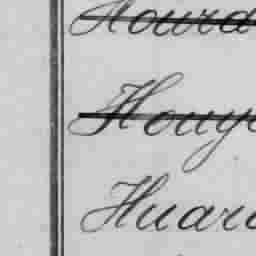 Hourd
Houy
Huar